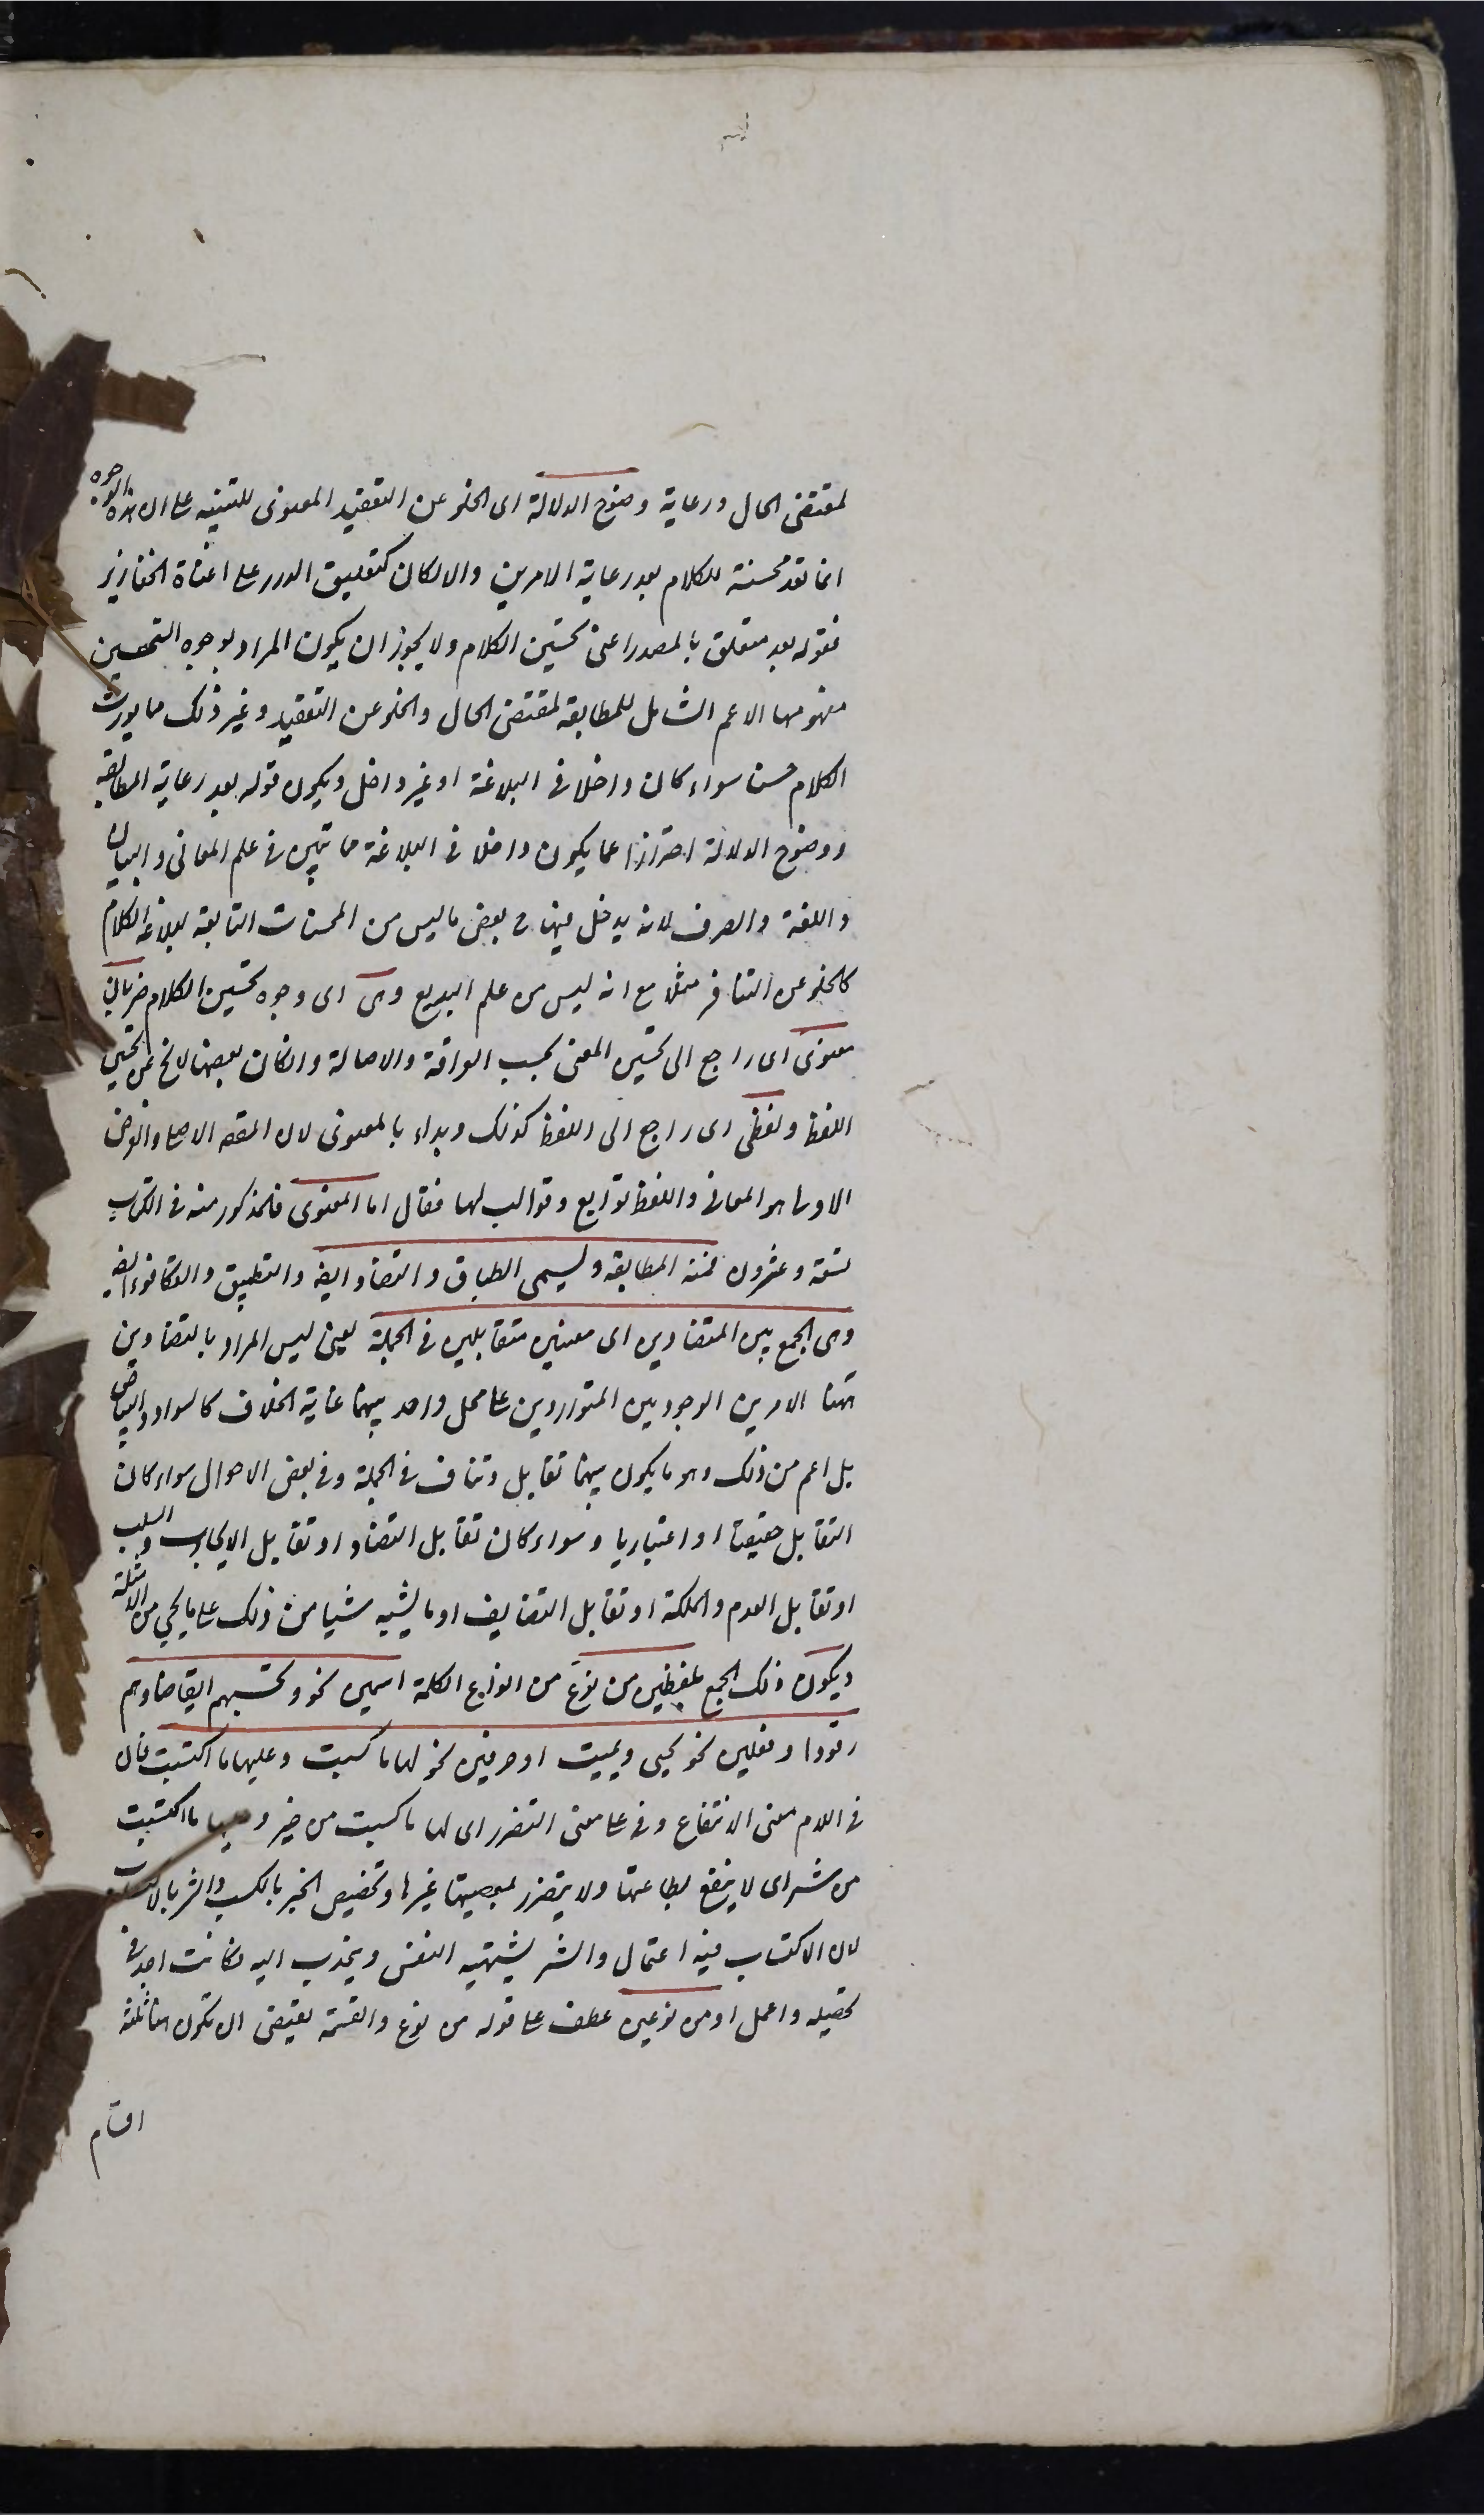 لمقتضى الحال ورعاية وضوح الدلالة اى الخلو عن التعقيد المعنوى للتنبيه على ان هذه الوجوه
انما تعد محسنة للكلام بعد رعاية الامرين والا لكان كتعليق الدرر على اعناق الخنازير
فقوله بعد متعلق بالمصدر اعنى تحسين الكلام ولا يجوز ان يكون المراد بوجوه التحسين
مفهومها الاعم الشامل للمطابقة لمقتضى الحال والخلو عن التعقيد وغير ذلك مما يورث
الكلام حسنا سواء كان داخلا فى البلاغة او غير داخل ويكون قوله بعد رعاية المطابقة
ووضوح الدلالة احترازا عما يكون داخلا فى البلاغة مما تبين فى علم المعانى والبيان
واللغة والصرف لانه يدخل فيها ح بعض ما ليس من المحسنات التابعة لبلاغة الكلام
كالخلو عن التنافر مثلا مع انه ليس من علم البديع وهى اى وجوه تحسين الكلام ضربان
معنوى اى راجع الى تحسين المعنى بحسب الواقة والاصالة وان كان بعضها لا يخ عن تحسين
اللفظ ولفظى اى راجع الى اللفظ كذلك وبداء بالمعنوى لان المقصد الاصلى والغرض
الاولى هو المعانى واللفظ توابع وقوالب لها فقال اما المعنوى فالمذكور منه فى الكتاب
تسعة وعشرون فمنه المطابقة وليسمى الطباق والتضاد ايضا والتطبيق والتكافوء ايضا
وهى الجمع بين المتضادين اى معنيين متقابلين فى الجملة يعنى ليس المراد بالتضادين
ههنا الامرين الوجوديين المتواردين على محل واحد بينهما غاية الخلاف كالسواد والبياض
بل اعم من ذلك وهو ما يكون بينهما تقابل وتناف فى الجملة وفى بعض الاحوال سواء كان
التقابل حقيقيا او اعتباريا وسواء كان تقابل التضاد او تقابل الايجاب والسلب
او تقابل العدم والملكة او تقابل التضايف او ما يشبه شيا من ذلك على ما يجئ من الامثلة
ويكون ذلك الجمع بلفظين من نوع من انواع الكلمة اسمين نحو وتحسبهم ايقاظا وهم
رقودا و فعلين نحو يحيى ويميت او حرفين نحو لها ما كسبت وعليها ما اكتسبت فان
فى اللام معنى الانتفاع وفى على معنى التضرر اى لها ما كسبت من خير وعليها ما اكتسبت
من شر اى لا ينتفع بطاعتها ولا يتضرر بمعصيتها غيرها وتخصيص الخير بالكسب والشر بالاكتساب
لان الاكتساب فيه اعتمال والشر يشتهيه النفس وينجذب اليه فكانت اجد فى
تحصيله واعمل او من نوعين عطف على قوله من نوع والقسمة يقتضى ان تكون هنا ثلثة
اقسام